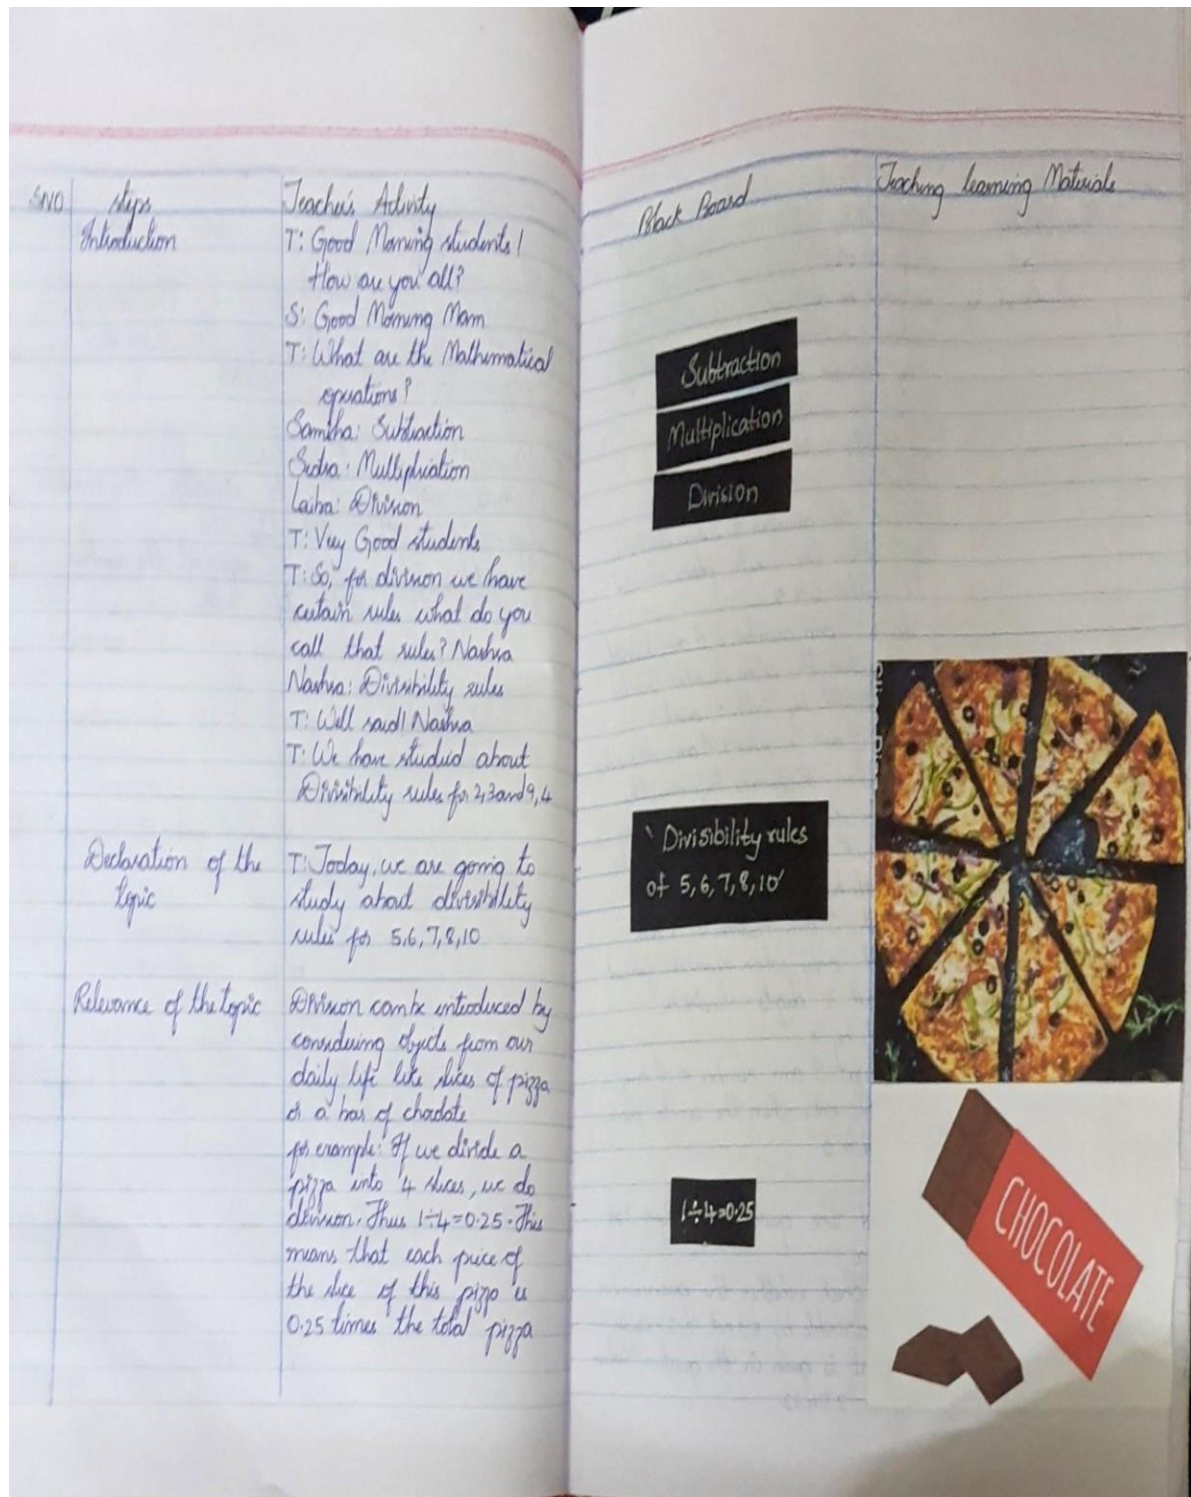 SNO
steps
Teacher's Activity
Black Board
Teaching learning Materials
Introduction
T: Good Morning students!
How are you all?
S: Good Morning Mam
T: What are the Mathematical
equations?
Samiha: Subtraction
Sudra: Multiplication
Laiba: Division
T: Very Good students
T: So, for division we have
certain rules what do you
call that rules? Nashra
Nashra: Divisibility rules
T: Well said! Nashra
T: We have studied about
Divisibility rules for 2,3 and 9,4
Declaration of the
topic
T: Today, we are going to
study about divisibility
rules for 5,6,7,8,10
Relevance of the topic
Division can be introduced by
considering objects from our
daily life like slices of pizza
or a bar of chocolate
for example: If we divide a
pizza into 4 slices, we do
division. Thus 1÷4=0.25. This
means that each piece of
the slice of this pizza is
0.25 times the total pizza
Subtraction
Multiplication
Division
Divisibility rules
of 5,6,7,8,10
1÷4=0.25
CHOCOLATE